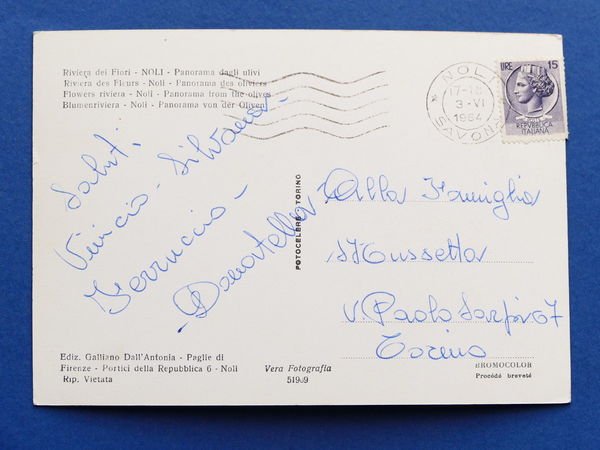 Riviera dei Fiori - NOLI - Panorama dagli ulivi
Riviera des Fleurs - Noli - Panorama des oliviers
Flowers riviera - Noli - Panorama from the olives
Blumenriviera - Noli - Panorama von der Oliven
Saluti:
Vinicio - Silvana -
Ferruccio -
- Donatella
FOTOCELERE TORINO
NOLI
17-18
3-VI
1964
* SAVONA
LIRE 15
REPUBBLICA
ITALIANA
Alla Famiglia
Mussetta
v. Paolo Sarpi 67
Torino
Ediz. Galliano Dall'Antonia - Paglie di
Firenze - Portici della Repubblica 6 - Noli
Rip. Vietata
Vera Fotografia
BROMOCOLOR
Procédé breveté